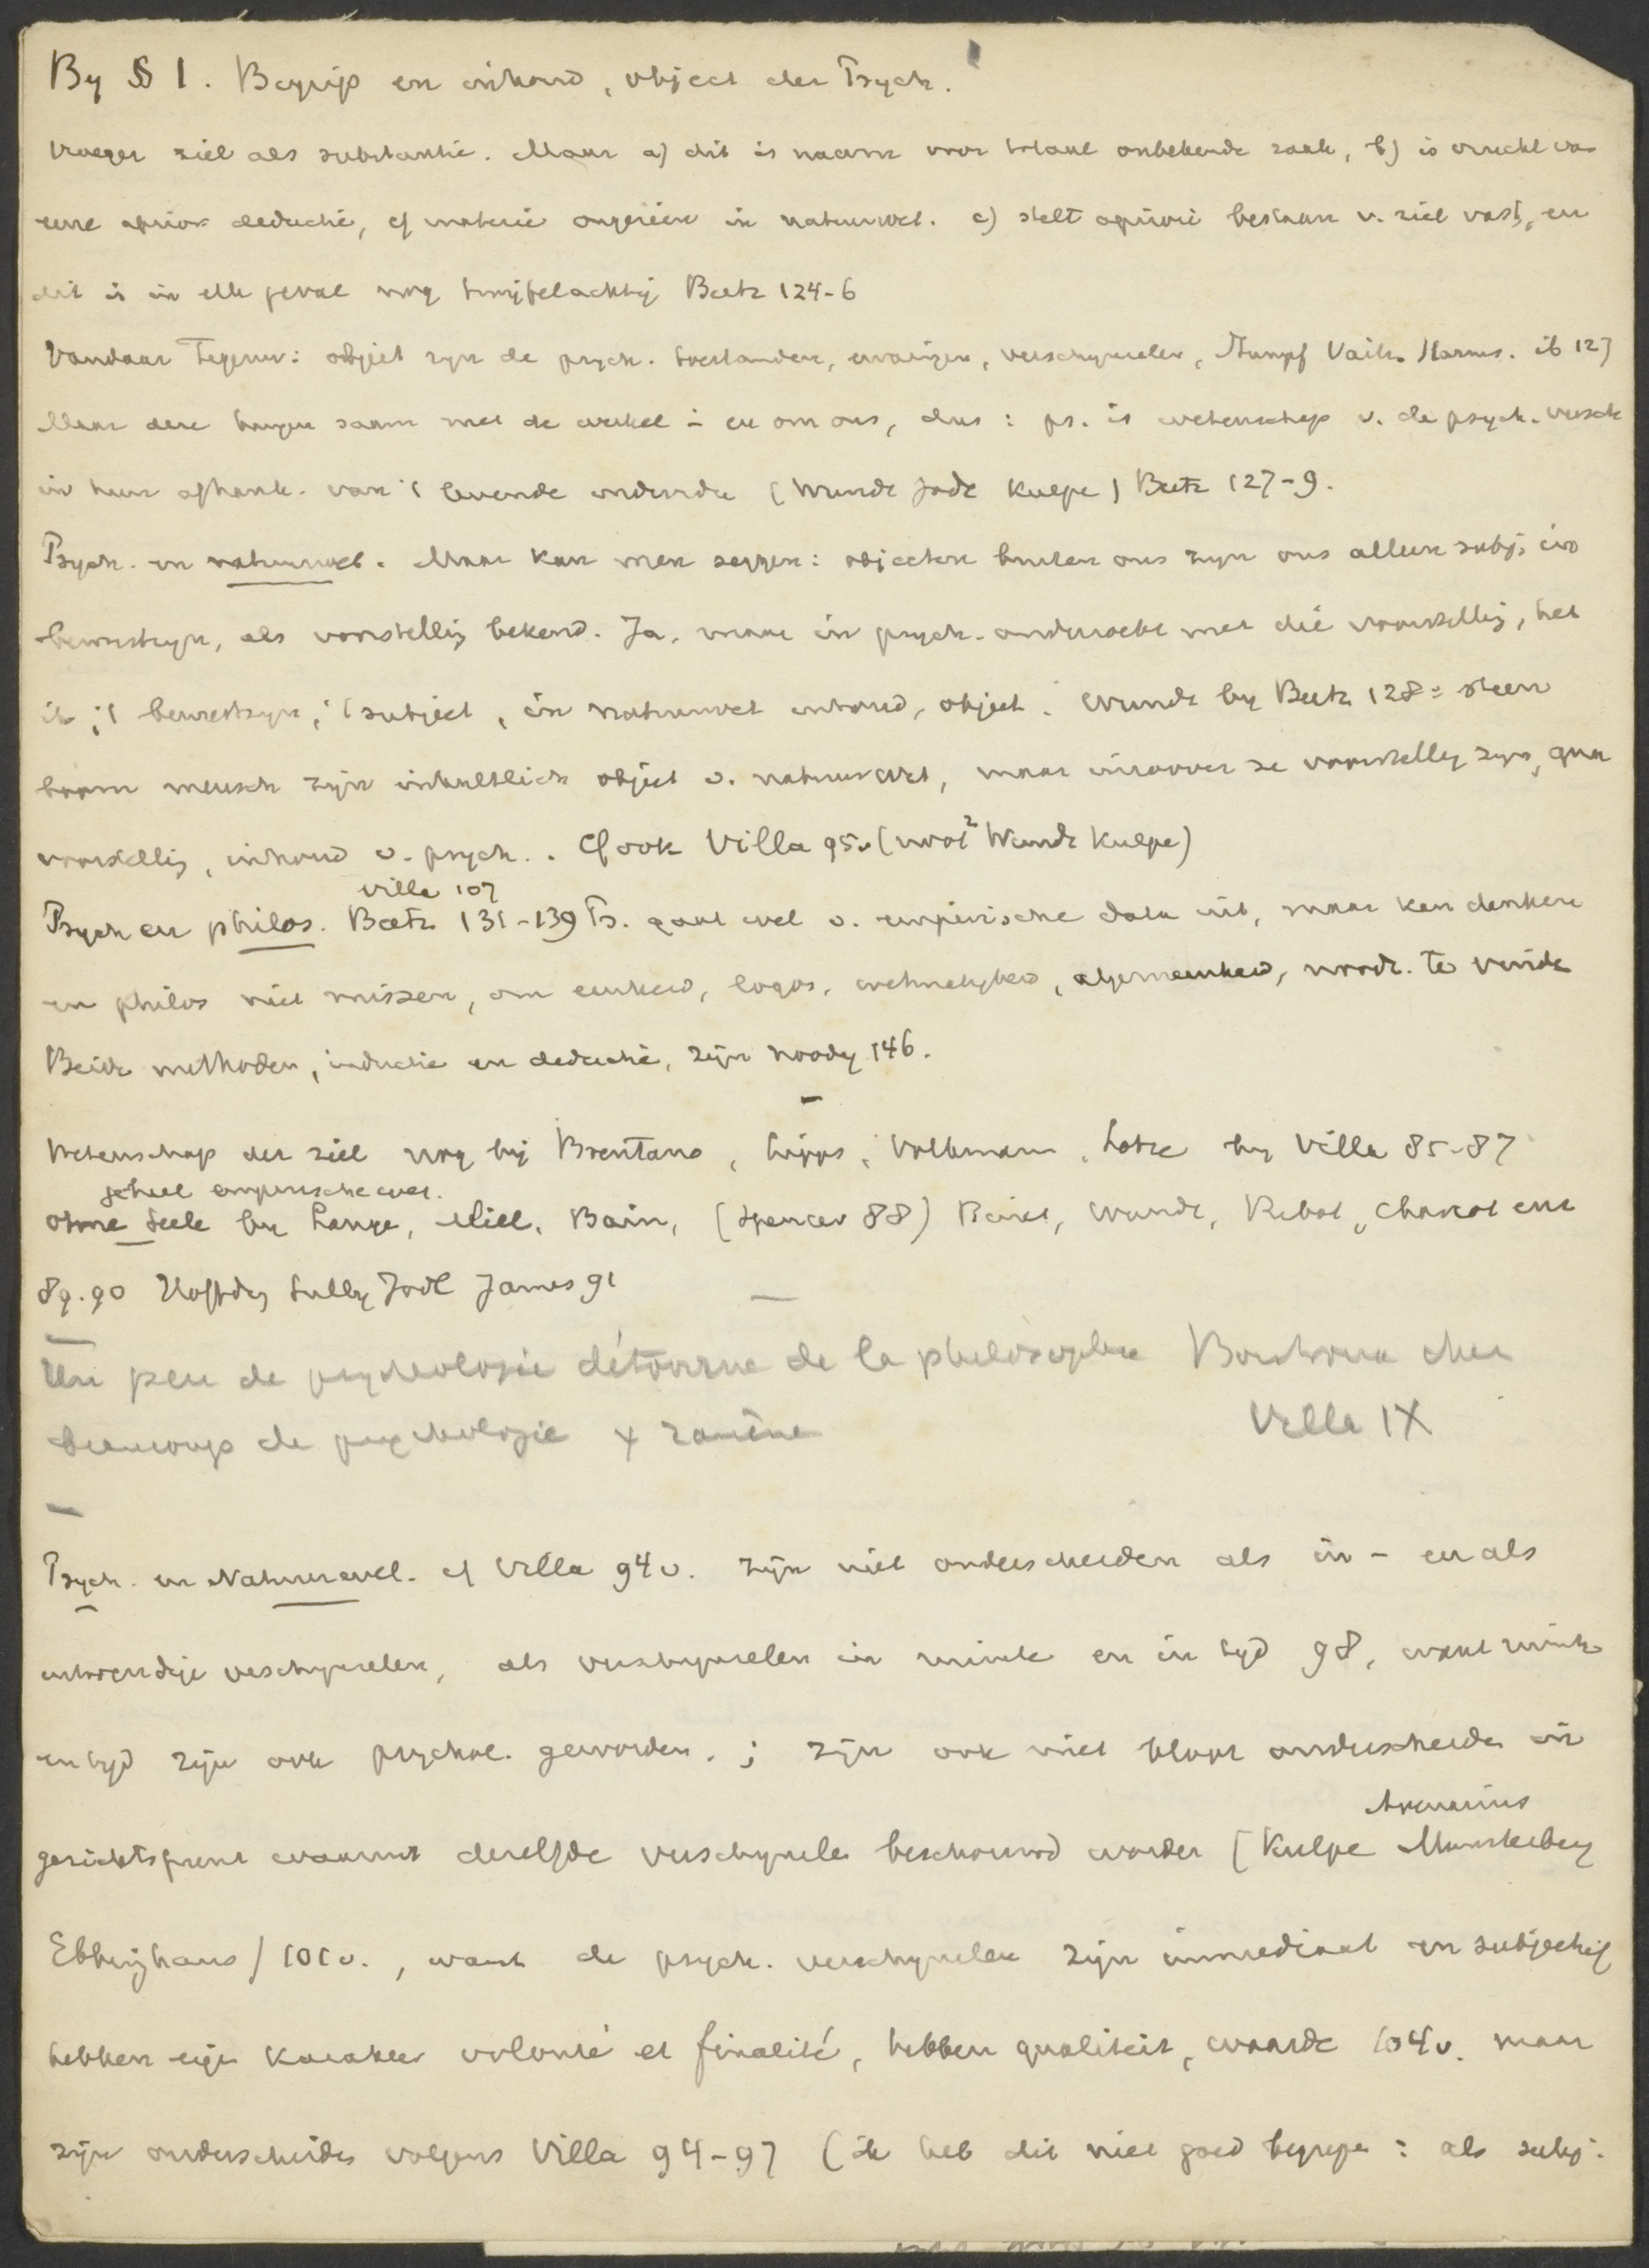 By § 1. Begrip en inhoud, object der Psych.
Vroeger ziel als substantie. Maar a) dit is naam voor totaal onbekende zaak, b) is vrucht van
eene aprior deductie, cf materie ongezien in natuurwet. c) stelt apriori bestaan v. ziel vast, en
dit is in elk geval nog twijfelachtig Beetz 124-6
Vandaar Tegenw: object zijn de psych. toestanden, ervaringen, verschynselen, Stumpf Vaih. Harms. ib 127
Maar deze hangen saam met de wereld in - en om ons, dus: ps. is wetenschap v. de psych. versch
in hun afhank. van 't levende individu (Wundt Jodl Kuelpe) Beetz 127-9.
Psych. en natuurwet. Maar kan men zeggen: objecten buiten ons zyn ons alleen subj. in
bewustzyn, als voorstellig bekend. Ja, maar in psych. onderzoekt men die voorstellig, het
ik, 't bewustzyn, 't subject, in natuurwet inhoud, object. Wundt by Beetz 128: steen
boom mensch zijn inhaltlich object v. natuurwet, maar inzoover ze voorstellig zyn, qua
voorstellig, inhoud v. psych.. Cf ook Villa 95v (noot² Wundt Kulpe)
Villa 107
Psych en philos. Beetz 131-139 Ps. gaat wel v. empirische data uit, maar kan denken
en philos niet missen, om eenheid, logos, wetmatigheid, algemeenheid, noodz. te vinde
Beide methoden, inductie en deductie, zijn noodig 146.
Wetenschap der ziel nog bij Brentano, Lipps, Volkmann, Lotze by Villa 85-87
geheel empirische wet.
ohne Seele by Lange, Mill, Bain, (Spencer 88) Binet, Wundt, Ribot, Charcot enz
89.90 Höffding Sully Jodl James 91
Un peu de psychologie détourne de la philosophie Boutroux chez
beaucoup de psychologie y ramène Villa IX
Psych. en Natuurwet. cf Villa 94v. zijn niet onderscheiden als in - en als
uitwendige verschynselen, als verschynselen in ruimte en in tyd 98, want ruimte
en tyd zijn ook psychol. geworden.; zijn ook niet bloot onderscheide in
Avenarius
gezichtspunt waaruit dezelfde verschynsele beschouwd worden (Kulpe Munsterberg
Ebbinghaus) 101v., want de psych. verschynselen zijn immediaat en subjectief
hebben eige karakter volonté et finalité, hebben qualiteit, waarde 104v. maar
zijn onderscheide volgens Villa 94-97 (ik heb dit niet goed begrepe: als subj.